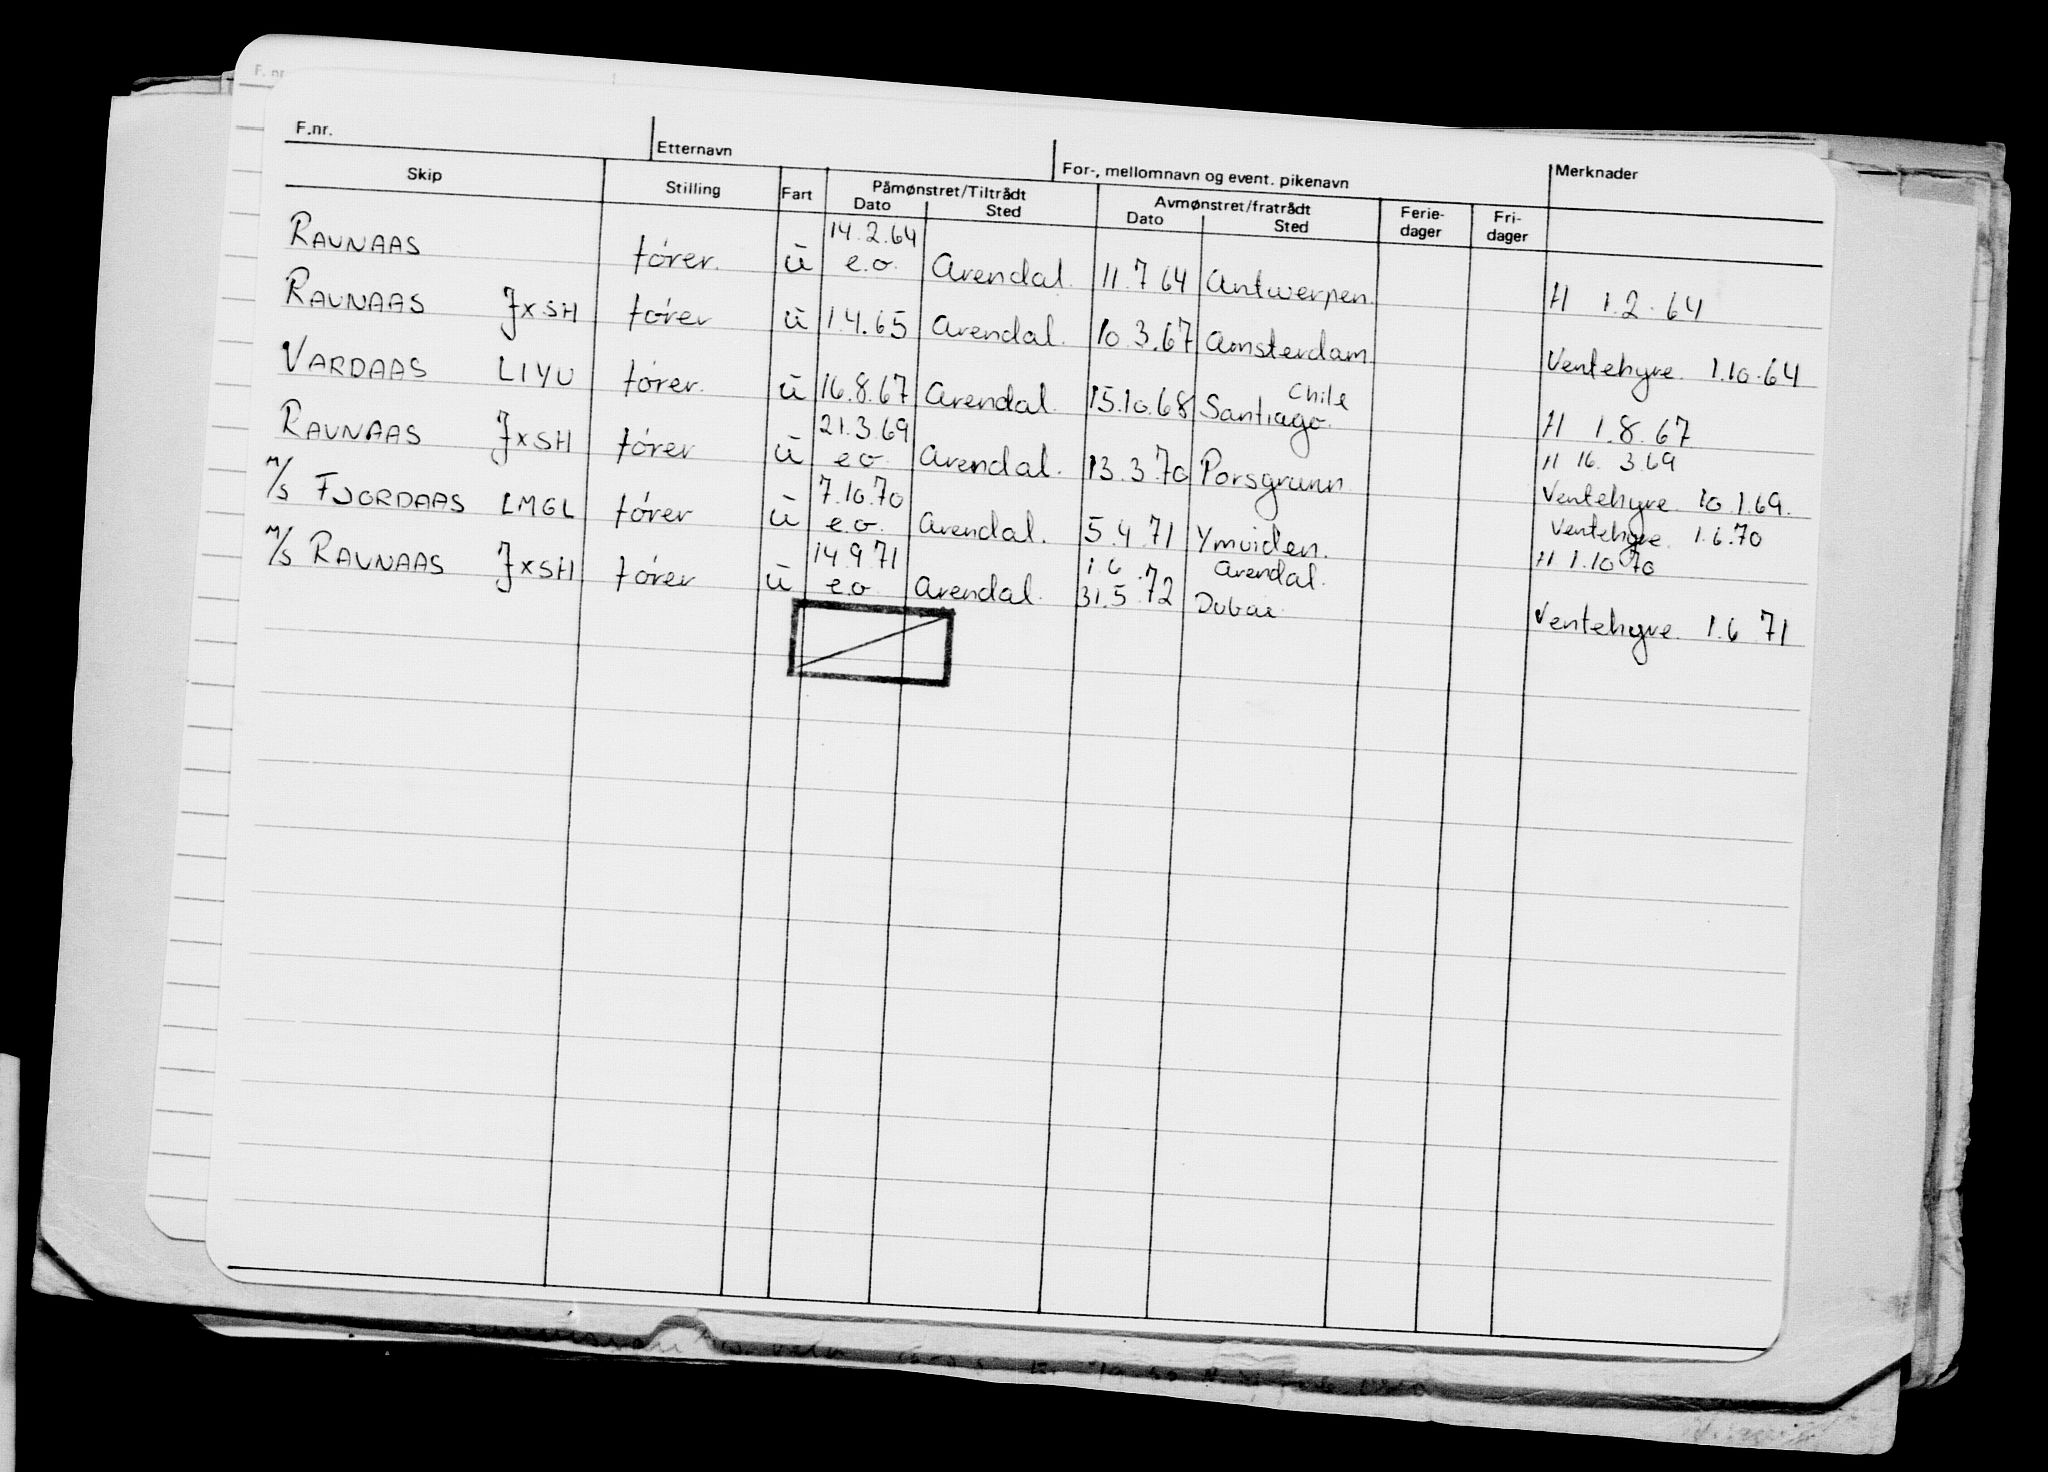 F.nr.
F.nr. Etternavn For-, mellomnavn og event. pikenavn Merknader
Skip Stilling Fart Påmønstret/Tiltrådt Avmønstret/fratrådt Ferie- Fri-
Dato Sted Dato Sted dager dager
14.2.64
RAVNAAS fører. ū e.o. Arendal. 11.7 64 Antwerpen. H 1.2.64
RAVNAAS JXSH fører ū 1.4.65 Arendal. 10.3.67 Amsterdam Ventehyre. 1.10.64
Chile
VARDAAS LIYU fører. ū 16.8.67 Arendal. 15.10.68 Santiago. H 1.8.67
21.3.69 H 16.3.69
RAVNAAS JXSH fører ū e.o. Arendal. 13.3.70 Porsgrunn Ventehyre. 10.1.69.
7.10.70 Ventehyre. 1.6.70
M/S FJORDAAS LMGL fører ū e.o. Arendal. 5.4.71 Ymuiden. H 1.10 70
14.9.71 1.6 Arendal.
M/S RAVNAAS JXSH fører ū e.o. Arendal. 31.5.72 Dubai. Ventehyre. 1.6 71